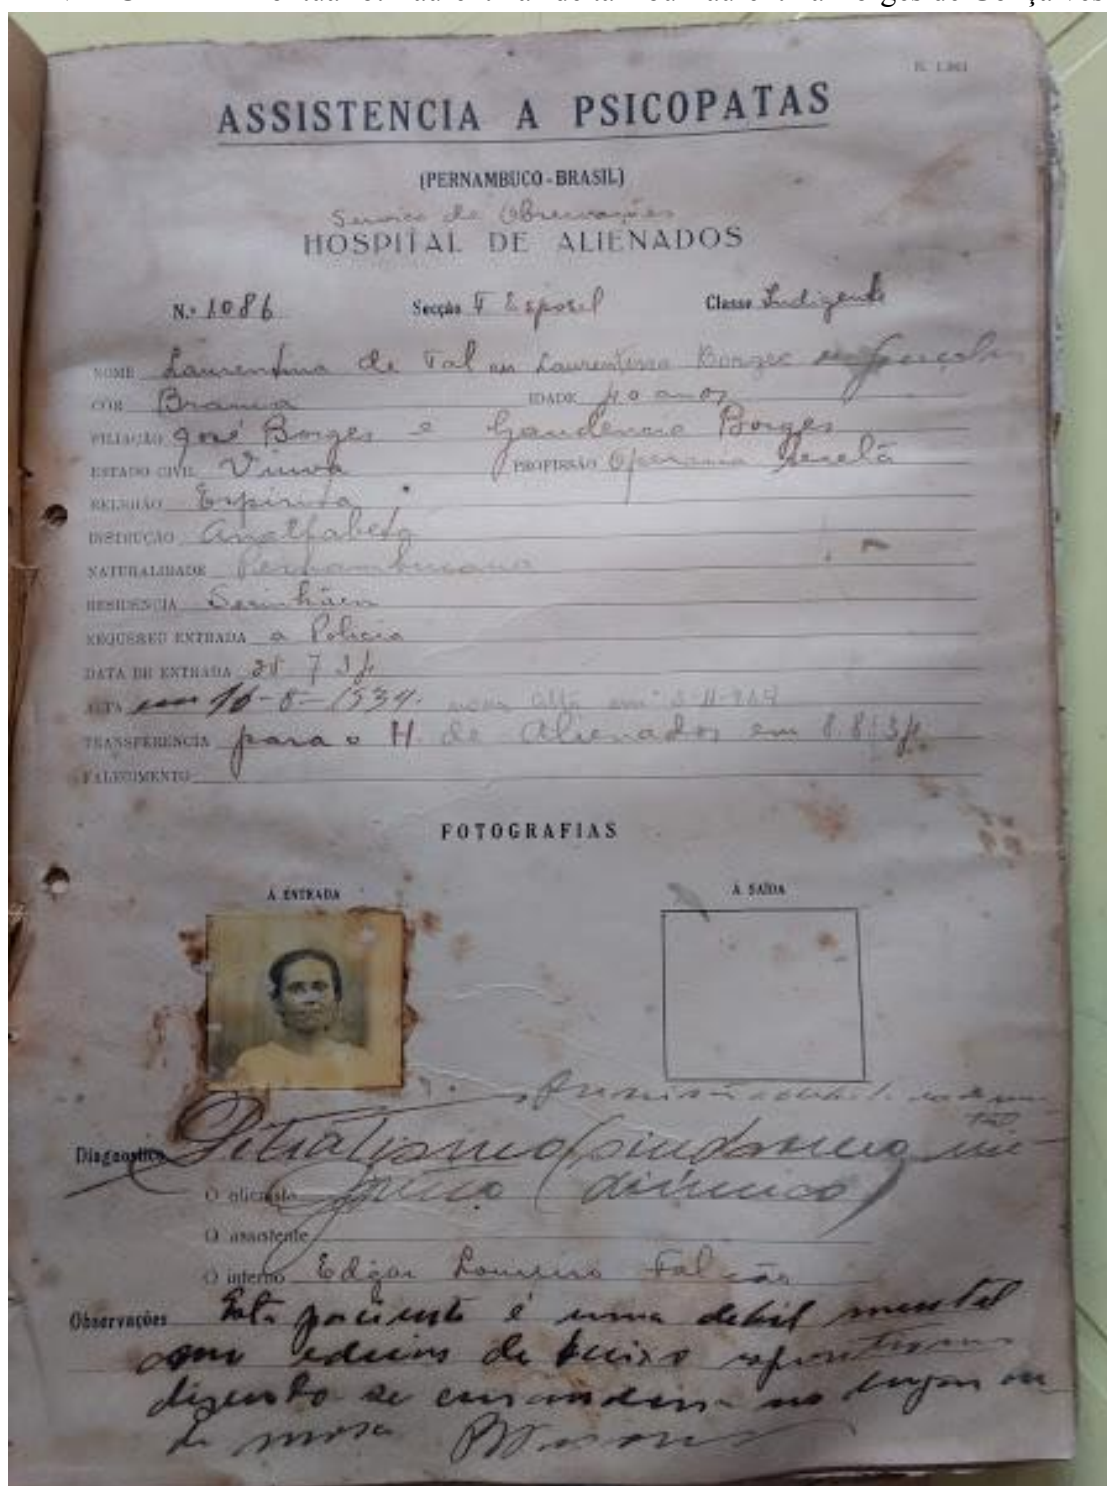 ASSISTENCIA A PSICOPATAS
(PERNAMBUCO-BRASIL)
Serviço de Observações
HOSPITAL DE ALIENADOS
N.º 1086 Secção Esposel Classe Indigente
NOME Laurentina de Tal ou Laurentina Borges
CÔR Branca IDADE 40 anos
FILIAÇÃO José Borges e Gaudencio Borges
ESTADO CIVIL Viuva PROFISSÃO Operaria
RELIGIÃO Espirita
INSTRUCÇÃO Analfabeta
NATURALIDADE Pernambucana
RESIDENCIA Serinhãen
REQUEREU ENTRADA a Policia
DATA DE ENTRADA 7 34
ALTA em 16-8-1934. nova alta em
TRANSFERENCIA para o H. de Alienados em 8.8.34
FALECIMENTO
FOTOGRAFIAS
Á ENTRADA Á SAÍDA
Diagnostico Pitiatismo
O alienista
O assistente
O interno Edgar Loureiro Falcão
Observações Esta paciente é uma debil mental
com de baixo espiritismo
dizendo se curandeira no lugar
de mora